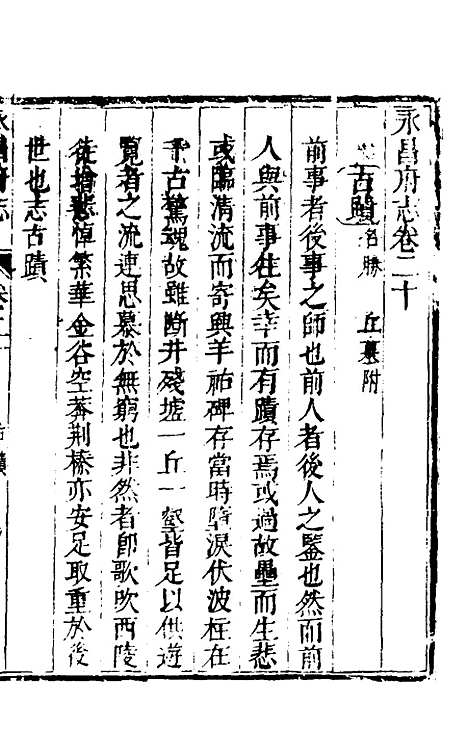 永昌府志卷二十
古蹟 名勝 丘墓附
前事者後事之師也前人者後人之鑒也然而前
人與前事往矣幸而有蹟存焉或過故壘而生悲
或臨清流而寄興羊祐碑存當時墮淚伏波柱在
千古驚魂故雖斷井殘墟一丘一壑皆足以供遊
覽者之流連思慕於無窮也非然者卽歌吹西陵
徒搶悲悼繁華金谷空莽荆榛亦安足取重於後
世也志古蹟
永昌府志